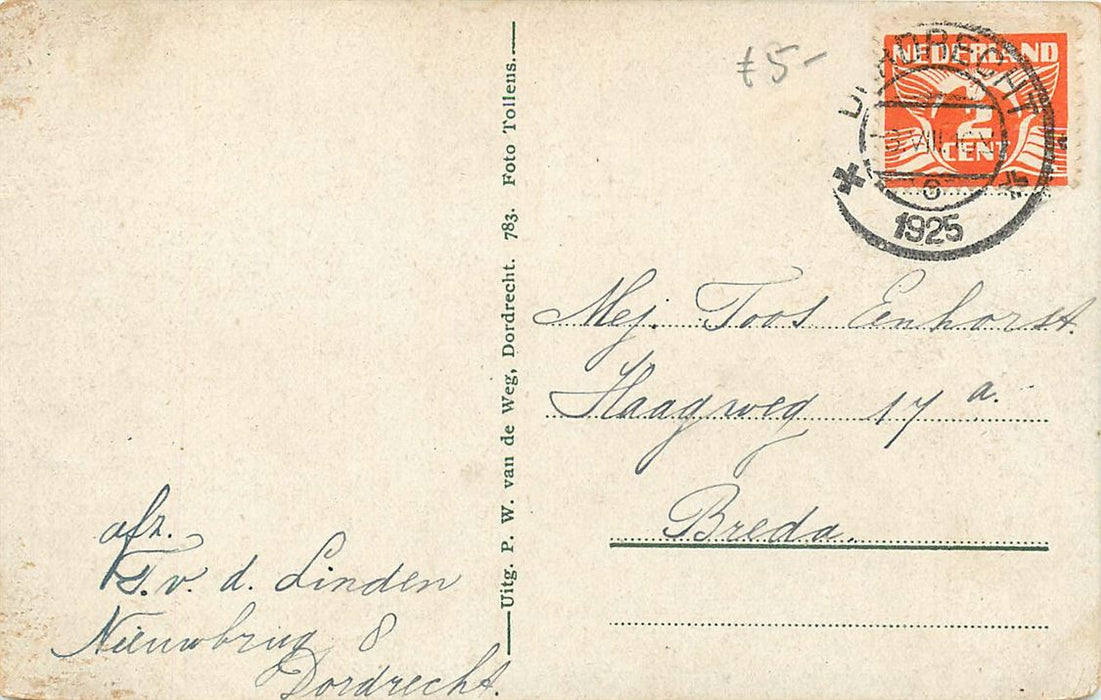 afz.
T. v. d. Linden
Nieuwbrug 8
Dordrecht.
Uitg. P. W. van de Weg, Dordrecht. 783. Foto Tollens.
f 5-
NEDERLAND
2
CENT
DORDRECHT
6
1925
Mej. Toos Eenhorst.
Haagweg 17 a.
Breda.